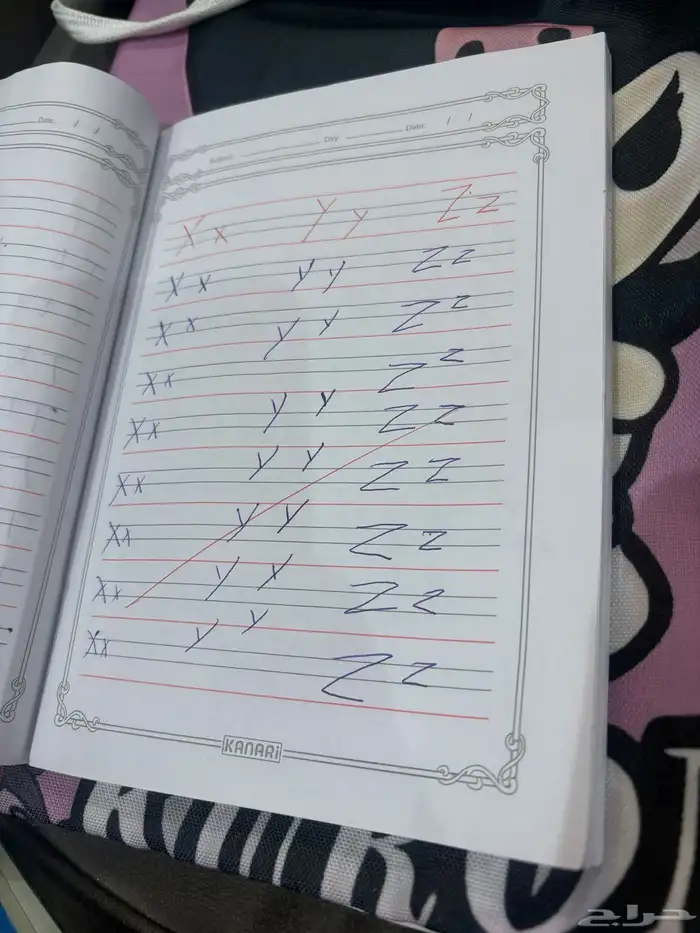 Date: / /
Subject: Day Date: / /
X x Y y Z z
X x Y y Z z
X x Y y Z z
X x Z z
X x Y y Z z
X x Y y Z z
X x Y y Z z
X x Y x Z z
X x Y y Z z
KANARi
حراج